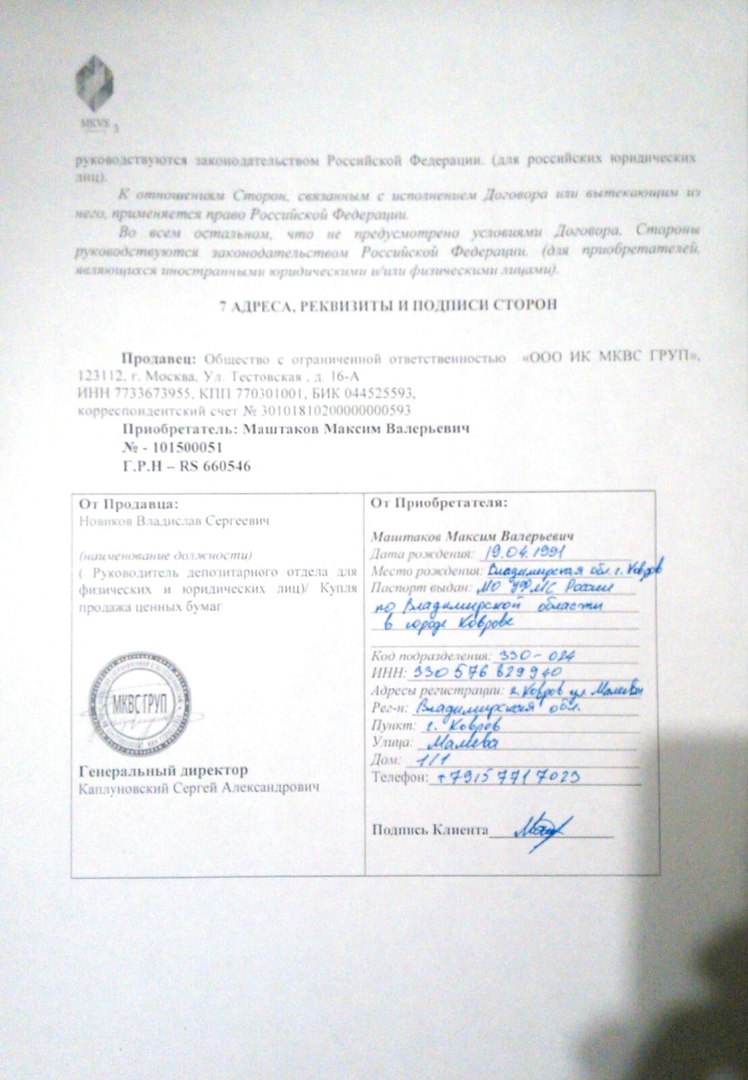 MKVS 3
руководствуются законодательством Российской Федерации. (для российских юридических
лиц).
К отношениям Сторон, связанным с исполнением Договора или вытекающим из
него, применяется право Российской Федерации.
Во всем остальном, что не предусмотрено условиями Договора, Стороны
руководствуются законодательством Российской Федерации. (для приобретателей,
являющихся иностранными юридическими и/или физическими лицами).
7 АДРЕСА, РЕКВИЗИТЫ И ПОДПИСИ СТОРОН
Продавец: Общество с ограниченной ответственностью «ООО ИК МКВС ГРУП»,
123112, г. Москва, Ул. Тестовская , д. 16-А
ИНН 7733673955, КПП 770301001, БИК 044525593,
корреспондентский счет № 30101810200000000593
Приобретатель: Маштаков Максим Валерьевич
№ - 101500051
Г.Р.Н – RS 660546
От Продавца:
Новиков Владислав Сергеевич
(наименование должности)
( Руководитель депозитарного отдела для
физических и юридических лиц)/ Купля
продажа ценных бумаг
МКВС ГРУП
Генеральный директор
Каплуновский Сергей Александрович
От Приобретателя:
Маштаков Максим Валерьевич
Дата рождения: 19.04.1991
Место рождения: Владимирская обл. г. Ковров
Паспорт выдан: МО УФМС России
по Владимирской области
в городе Коврове
Код подразделения: 330-024
ИНН: 330576829940
Адресы регистрации: г. Ковров ул Малеева
Рег-н: Владимирская обл.
Пункт: г. Ковров
Улица: Малеева
Дом: 1/1
Телефон: +79157717023
Подпись Клиента